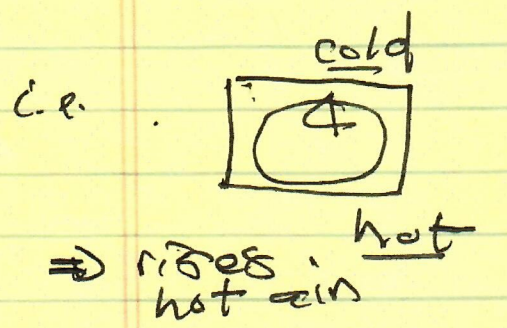 cold
i.e.
hot
⇒ rises.
hot air